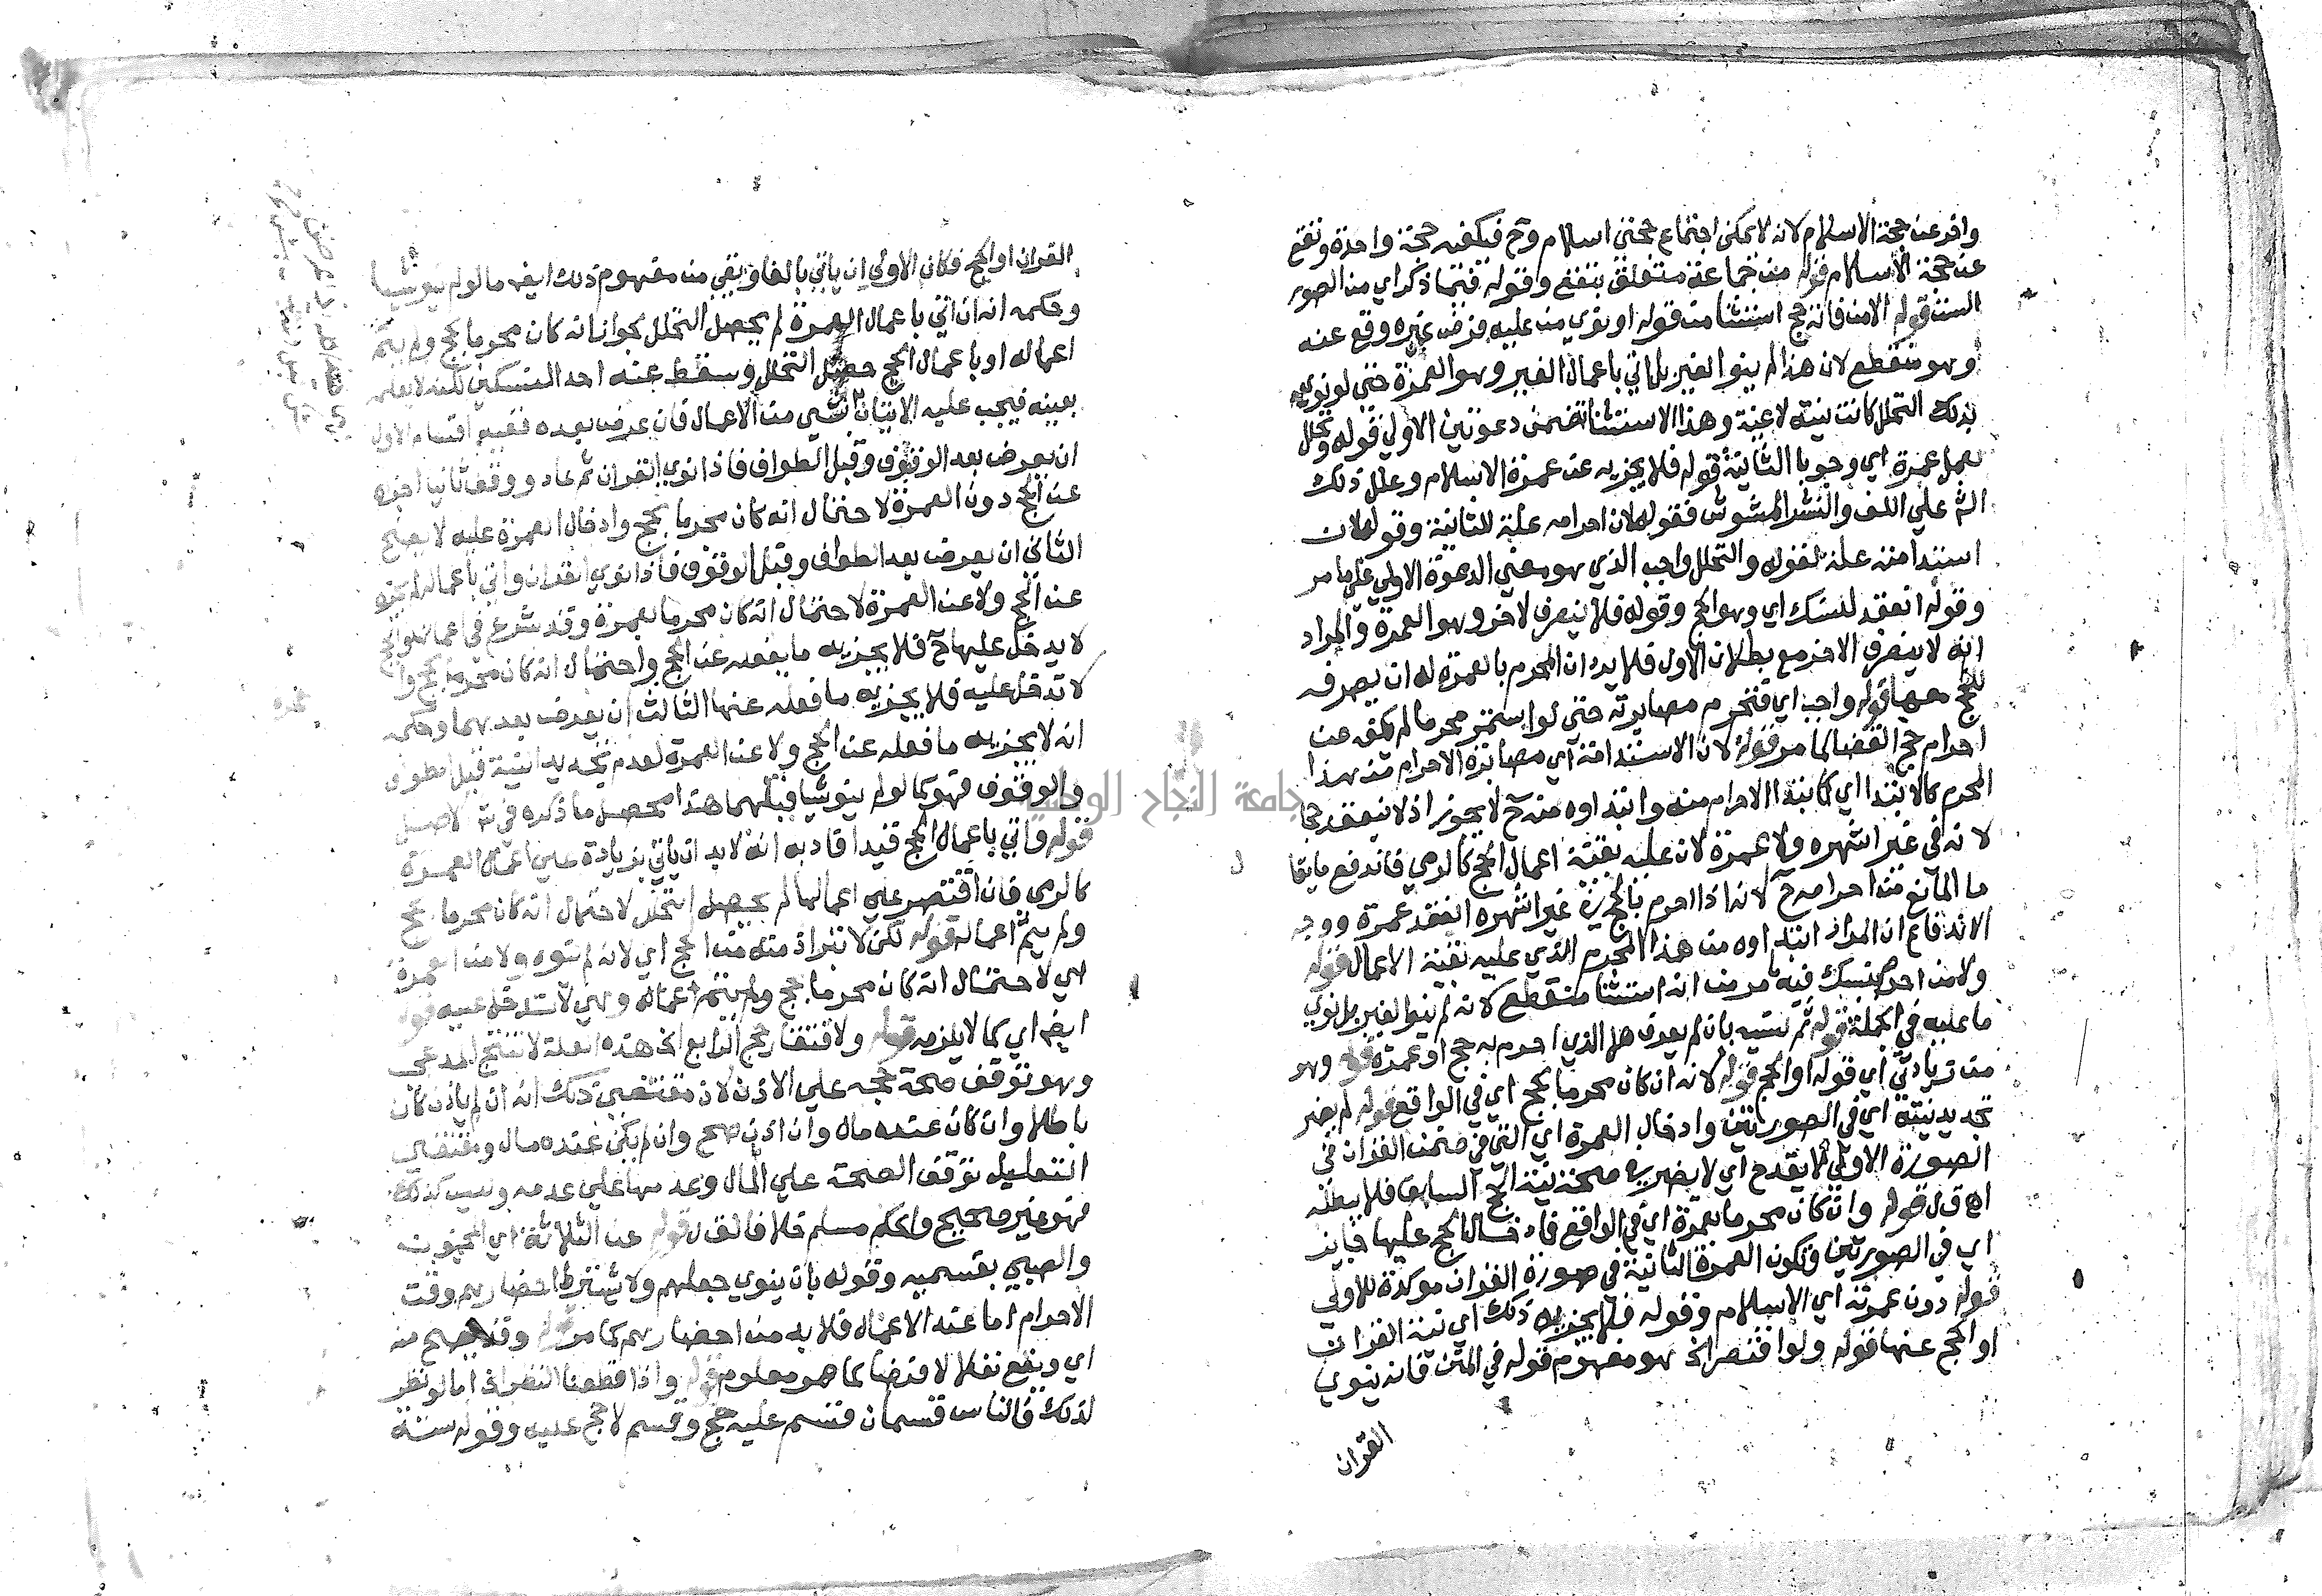 واقع عن حجة الاسلام لانه لا يمكن اجتماع حجتي اسلام وح فيكفيه حجة واحدة وتقع
عن حجة الاسلام قوله من جماعة متعلق بتقع وقوله فيما ذكر اي من الصور
الست قوله الا من فاته حج استثنا من قوله او نوي من عليه فرض غيره وقع عنه
وهو منقطع لان هذا لم ينو الغير بل اتي باعمال الغير وهو العمرة حتي لو نوي
بذلك التحلل كانت نيته لاغية وهذا الاستثنا تضمن دعوتين الاولي قوله وتحلل
بعمل عمرة اي وجوبا الثانية قوله فلا يجزيه عن عمرة الاسلام وعلل ذلك
الش علي اللف والنشر المشوش فقوله لان احرامه علة للثانية وقوله لان
استدامته علة لقوله والتحلل واجب الذي هو معني الدعوة الاولي علي ما مر
وقوله انعقد لنسك اي وهو الحج وقوله فلا ينصرف لاخر وهو العمرة والمراد
انه لا ينصرف الاخر مع بطلان الاول فلا يرد ان المحرم بالعمرة له ان يصرفه
للحج معها قوله واجب اي فتحرم مصابرته حتي لو استمر محرما لم يكفه عن
احرام حج القضا لما مر قوله لان الاستدامة اي مصابرة الاحرام من هذا
المحرم كالابتدا اي كابتدا الاحرام منه وابتداوه منه ح لا يجوز اذ لا ينعقد حجا
لانه في غير اشهره ولا عمرة لان عليه بقية اعمال الحج كالرمي فاندفع ما يقا
ما المانع من احرامه ح لانه اذا احرم بالحج في غير اشهره انعقد عمرة ووجه
الاندفاع ان المراد ابتداوه من هذا المحرم الذي عليه بقية الاعمال قوله
ولا من احرم بنسك فيه مر من انه استثنا منقطع لانه لم ينو الغير بل نوي
ما عليه في الجملة قوله ثم نسيه بان لم يعرف هل الذي احرم به حج او عمرة قوله وهو
من زيادتي اي قوله او الحج قوله لانه ان كان محرما بحج اي في الواقع قوله لم يضر
تجديد نيته اي في الصورتين وادخال العمرة اي التي في ضمن القران في
الصورة الاولي لا يقدح اي لا يضر في صحة نية الحج السابقة فلا يبطله
اهـ ق ل قوله وان كان محرما بعمرة اي في الواقع فادخال الحج عليها جايز
اي في الصورتين وتكون العمرة الثانية في صورة القران موكدة للاولي
قوله دون عمرته اي الاسلام وقوله فلا يجزيه ذلك اي نية القران
او الحج عنها قوله ولو اقتصر الخ هو مفهوم قوله في المتن فانه ينوي
القران
القران او الحج فكان الاولي ان ياتي بالفا وبقي من مفهوم ذلك ايضا ما لو لم ينو شيا
وحكمه انه ان اتي باعمال العمرة لم يحصل التحلل لجواز انه كان محرما بحج ولم يتم
اعماله او باعمال الحج حصل التحلل وسقط عنه احد النسكين لكنه لا يعلم
بعينه فيجب عليه الاتيان بشي من الاعمال فان عرض بعده ففيه اقسام الاول
ان يعرض بعد الوقوف وقبل الطواف فاذا نوي القران ثم عاد ووقف ثانيا اجزه
عن الحج دون العمرة لاحتمال انه كان محرما بحج وادخال العمرة عليه لا يصح
الثاني ان يعرض بعد الطواف وقبل الوقوف فاذا نوي القران واتي باعماله لم يجزه
عن الحج ولا عن العمرة لاحتمال انه كان محرما بعمرة وقد شرع في اعمالها والحج
لا يدخل عليها ح فلا يجزيه ما يفعله عن الحج واحتمال انه كان محرما بحج وا
لا تدخل عليه فلا يجزيه ما فعله عنها الثالث ان يعرض بعدهما وحكمه
انه لا يجزيه ما فعله عن الحج ولا عن العمرة لعدم تجديد النية قبل الطواف
والوقوف فهو كما لو لم ينو شيا قبلهما هذا محصل ما ذكره في ش الاصل
قوله واتي باعمال الحج قيد افاد به انه لا بد ان ياتي بزيادة علي اعمال العمرة
كالرمي فان اقتصر علي اعمالها لم يحصل التحلل لاحتمال انه كان محرما بحج
ولم يتم اعماله قوله لكن لا تبرا ذمته من الحج اي لانه لم ينوه ولا من العمرة
اي لاحتمال انه كان محرما بحج ولم يتم اعماله وهي لا تدخل عليه قوله
ايضا اي كما لا يلزمه قوله ولافتقار حج الرابع الخ هذه العلة لا تنتج المدعي
وهو توقف صحة حجه علي الاذن لان مقتضي ذلك انه ان لم ياذن كان
باطلا وان كان عنده مال وان اذن صح وان لم يكن عنده مال ومقتضي
التعليل توقف الصحة علي المال وعدمها علي عدمه وليس كذلك
فهو غير صحيح والحكم مسلم قلا فالق ل قوله عن الثلاثة اي المجنون
والصبي بقسميه وقوله بان ينوي جعلهم ولا يشترط احضارهم وقت
الاحرام اما عند الاعمال فلا بد من احضارهم كما مر قوله وقد يصح منه
اي ويقع نفلا لا فرضا كما هو معلوم قوله واذا قطعنا النظر الخ اما لو نظر
لذلك فالناس قسمان قسم عليه حج وقسم لا حج عليه وقوله ستة
جامعة النجاح الوطنية